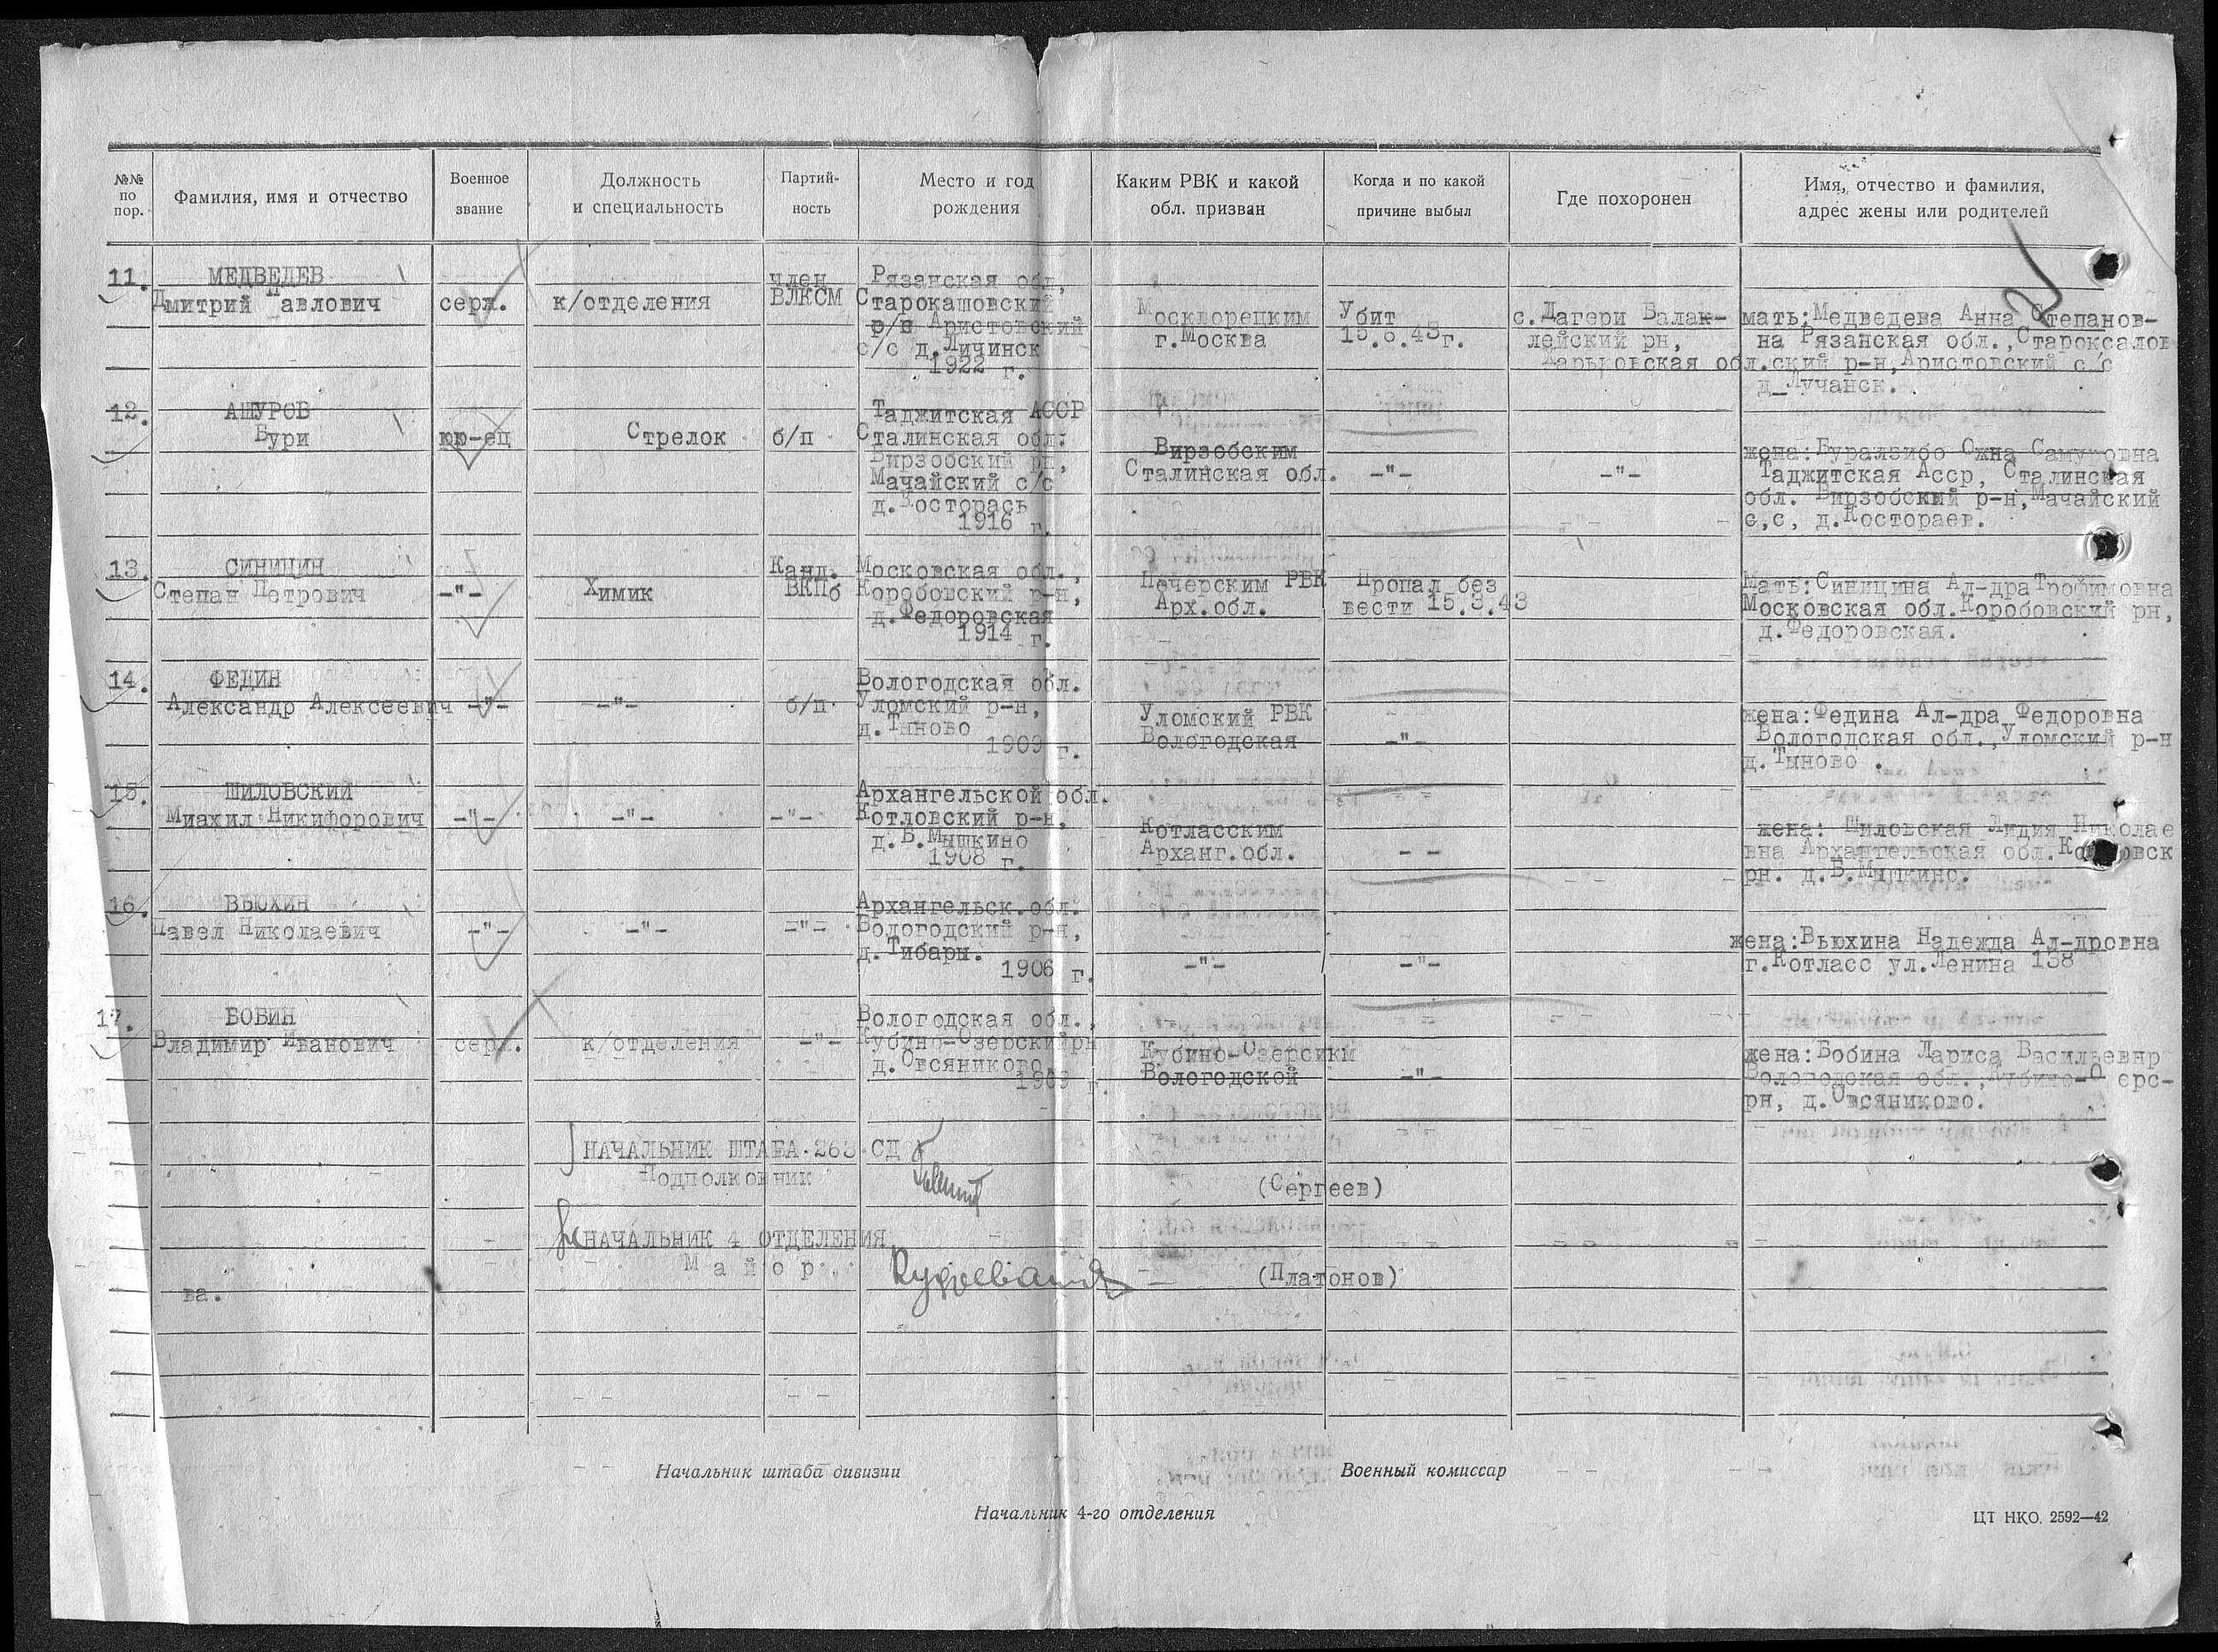 №№ по пор.
Фамилия, имя и отчество
Военное звание
Должность и специальность
Партий-ность
Место и год рождения
Каким РВК и какой обл. призван
Когда и по какой причине выбыл
Где похоронен
Имя, отчество и фамилия, адрес жены или родителей
11.
МЕДВЕДЕВ
Дмитрий Павлович
серж.
к/отделения
член
ВЛКСМ
Рязанская обл,
Старокашовский
р/н Аристовский
с/с д.Личинск
1922 г.
Москворецким
г.Москва
Убит
15.8.43г.
с.Лагери Балак-
лейский рн,
Харьковская обл.
мать:Медведева Анна Степанов-
на Рязанская обл.,Староксалов
ский р-н,Аристовский с/с
д_Лучанск.
12.
АШУРОВ
Бури
кр-ец
Стрелок
б/п
Таджитская АССР
Сталинская обл.
Вирзобский рн,
Мачайский с/с
д.Косторась
1916 г.
Вирзобским
Сталинская обл.
-"-
-"-
жена:Буралзибо Ожна Самуковна
Таджитская Асср, Сталинская
обл. Вирзобский р-н,Мачайский
с,с, д.Костораев.
13.
СИНИЦИН
Степан Петрович
-"-
Химик
Канд.
ВКПб
Московская обл.,
Коробовский р-н,
д.Федоровская
1914 г.
Печерским РВК
Арх.обл.
Пропал без
вести 15.3.43
Мать:Синицина Ал-дра Трофимовна
Московская обл.Коробовский рн,
д.Федоровская.
14.
ФЕДИН
Александр Алексеевич
-"-
-"-
б/п
Вологодская обл.
Уломский р-н,
д.Тыново
1909 г.
Уломский РВК
Вологодская
-"-
жена:Федина Ал-дра Федоровна
Вологодская обл.,Уломский р-н
д.Тыново .
15.
ШИЛОВСКИЙ
Миахил Никифорович
-"-
-"-
-"-
Архангельской обл.
Котловский р-н,
д.Б.Мышкино
1908 г.
Котласским
Арханг.обл.
- -
жена: Шиловская Лидия Николае
вна Архангельская обл.
рн. д.Б.Мышкино.
16.
ВЬЮХИН
Павел Николаевич
-"-
-"-
-"-
Архангельск.обл.
Вологодский р-н,
д.Тибары.
1906 г.
-"-
-"-
жена:Вьюхина Надежда Ал-дровна
г.Котласс ул.Ленина 138
17.
БОБИН
Владимир Иванович
серж.
к/отделения
-"-
Вологодская обл.,
Кубино-Озерский рн
д.Овсяниково
1909 г.
Кубино-Озерсикм
Вологодской
-"-
жена:Бобина Лариса Васильевнр
Вологодская обл.,Кубино-О ерс-
рн, д.Овсяниково.
НАЧАЛЬНИК ШТАБА 263 СД
Подполковник
(Сергеев)
НАЧАЛЬНИК 4 ОТДЕЛЕНИЯ
Майор
(Платонов)
ва.
Начальник штаба дивизии
Военный комиссар
Начальник 4-го отделения
ЦТ НКО. 2592—42